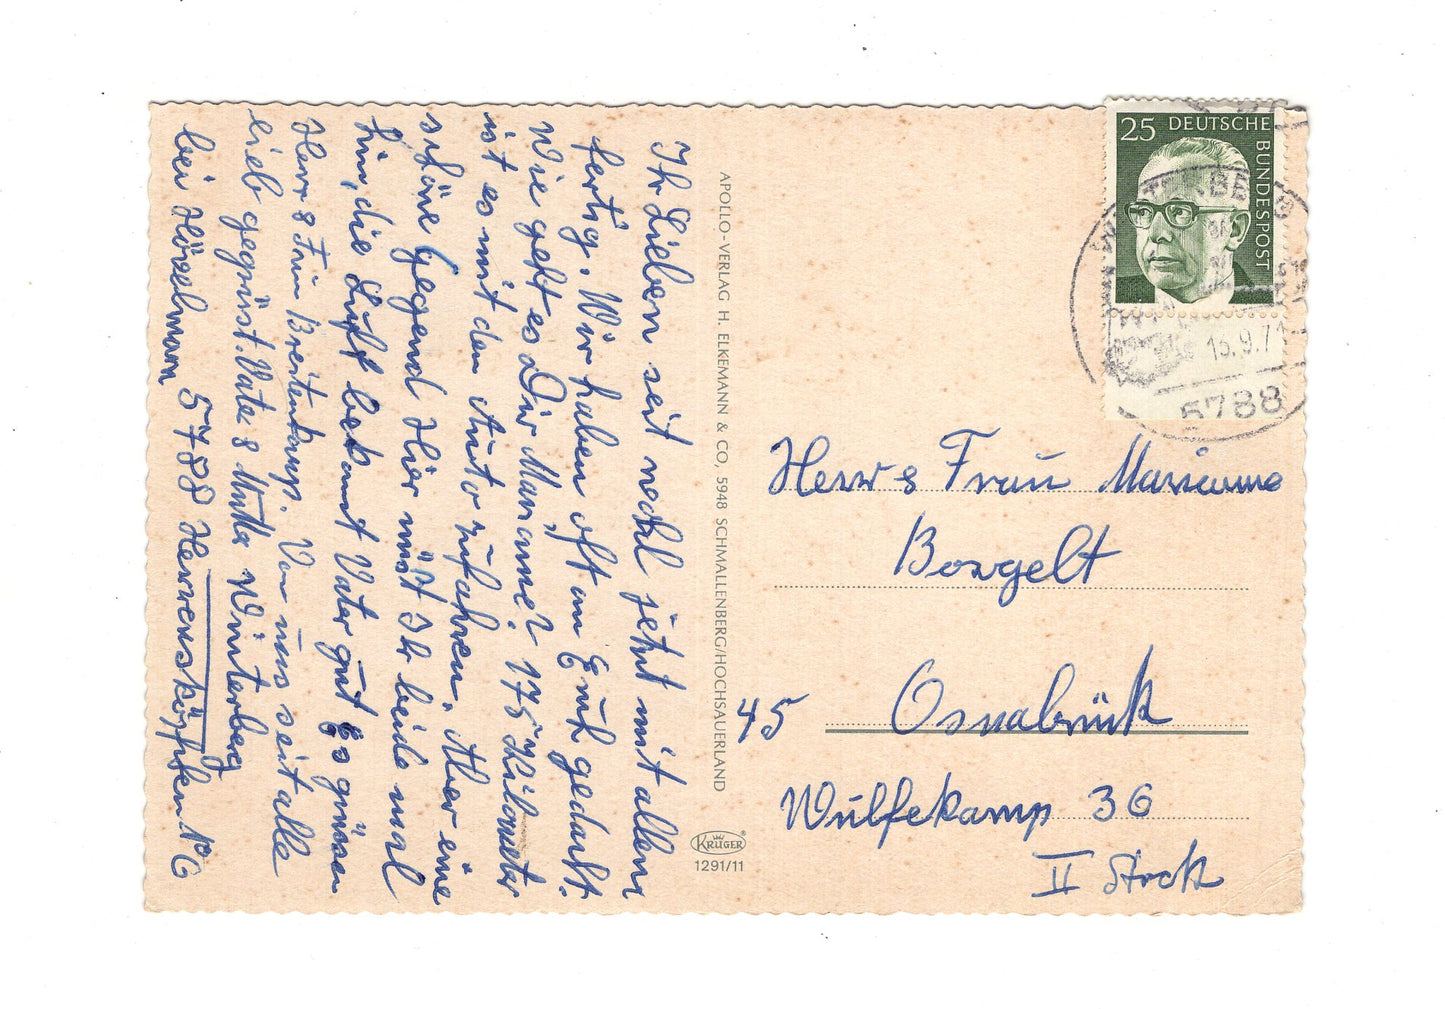 Ihr Lieben seit recht jetzt mit allem
fertig. Wir haben oft an Euch gedacht.
Wie geht es Dir Marianne? 175 Kilometer
ist es mit den Auto zufahren. Aber eine
schöne Gegend Hier müst Ihr beide mal
hin, die Luft bekomt Vater gut Es grüssen
Herr & Frau Breitenkamp. Von uns seit alle
lieb gegrüst. Vater & Mutter Winterberg
bei Hövelmann 5788 Herrensköpfen No 6
APOLLO-VERLAG H. ELKEMANN & CO, 5948 SCHMALLENBERG/HOCHSAUERLAND
KRÜGER®
1291/11
25 DEUTSCHE
BUNDESPOST
15.9.71
5788
Herr & Frau Marianne
Borgelt
45 Osnabrück
Wulfekamp 36
II Stock